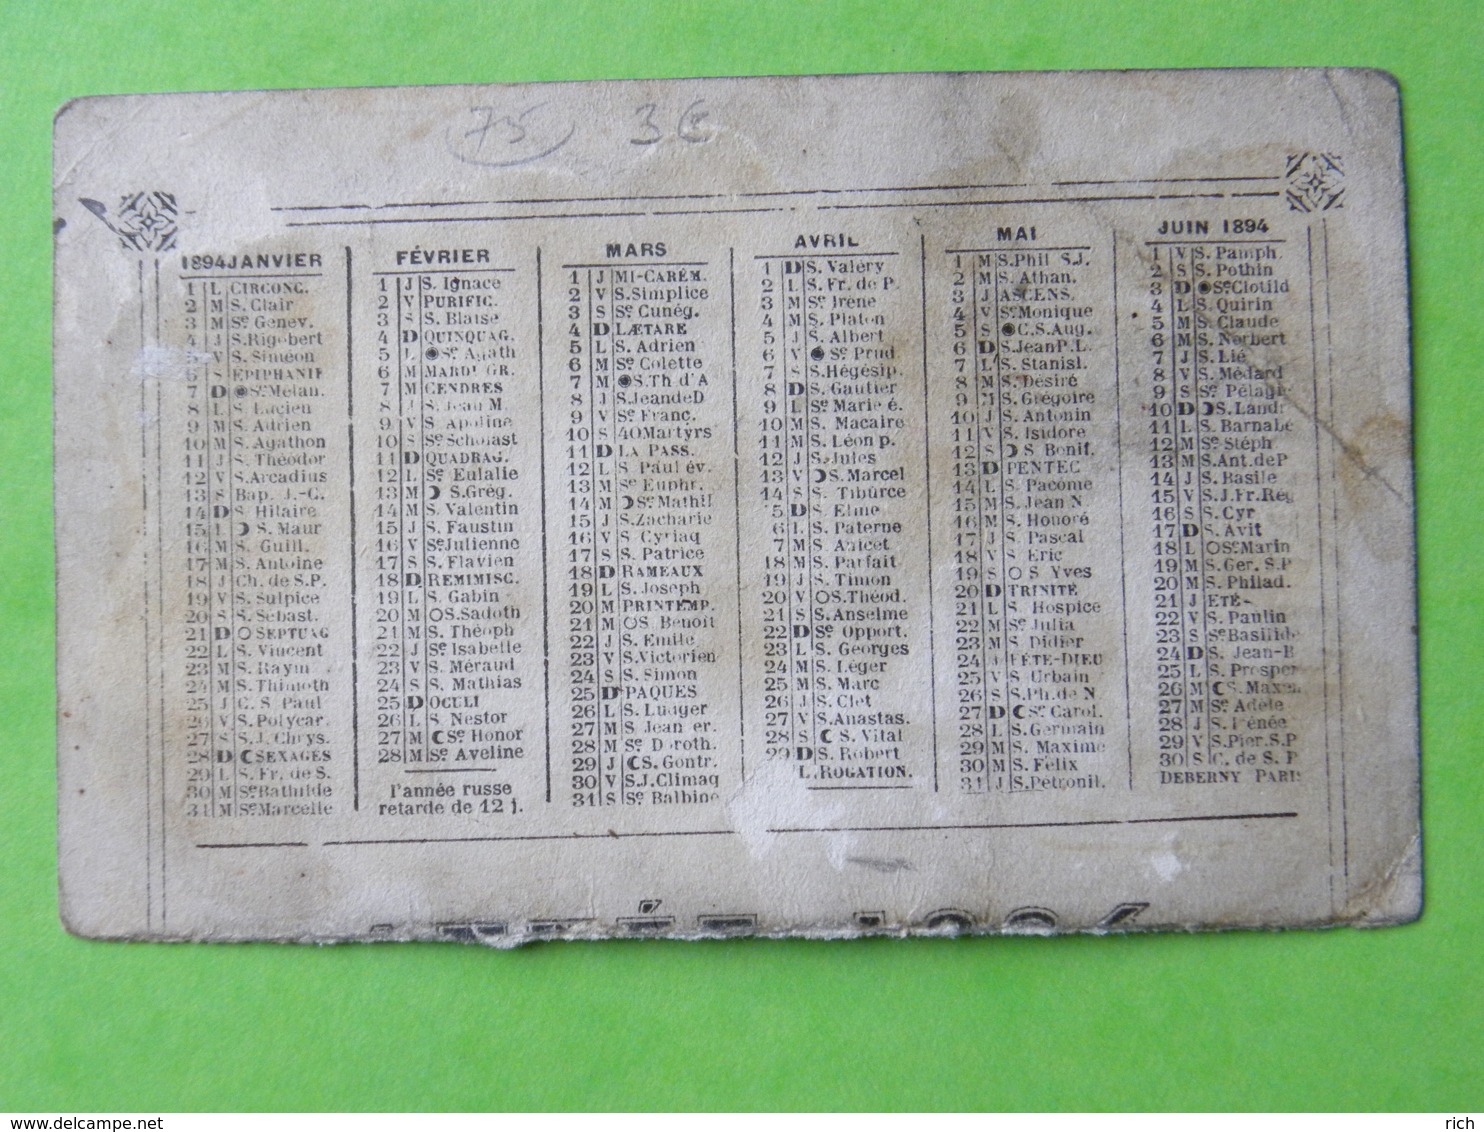 75 3€
1894 JANVIER
1 L CIRCONC.
2 M S. Clair
3 M Se Genev.
4 J S. Rigobert
5 V S. Siméon
6 S EPIPHANIE
7 D ●Se Melan.
8 L S. Lucien
9 M S. Adrien
10 M S. Agathon
11 J S. Théodor
12 V S. Arcadius
13 S Bap. J.-C.
14 D S. Hilaire
15 L ☽ S. Maur
16 M S. Guill.
17 M S. Antoine
18 J Ch. de S.P.
19 V S. Sulpice
20 S S. Sebast.
21 D ○ SEPTUAG
22 L S. Vincent
23 M S. Raym
24 M S. Thimoth
25 J C. S. Paul
26 V S. Polycar.
27 S S. J. Chrys.
28 D ☾ SEXAGES
29 L S. Fr. de S.
30 M Se Bathilde
31 M Se Marcelle
FÉVRIER
1 J S. Ignace
2 V PURIFIC.
3 S S. Blaise
4 D QUINQUAG.
5 L ●Se Agath
6 M MARDI GR.
7 M CENDRES
8 J S. Jean M.
9 V Se Apoline
10 S Se Scholast
11 D QUADRAG.
12 L Se Eulalie
13 M ☽ S. Grég.
14 M S. Valentin
15 J S. Faustin
16 V Se Julienne
17 S S. Flavien
18 D REMIMISC.
19 L S. Gabin
20 M ○S. Sadoth
21 M S. Théoph
22 J Se Isabelle
23 V S. Méraud
24 S S. Mathias
25 D OCULI
26 L S. Nestor
27 M ☾Se Honor
28 M Se Aveline
l'année russe
retarde de 12 j.
MARS
1 J MI-CARÉM.
2 V S. Simplice
3 S Se Cunég.
4 D LÆTARE
5 L S. Adrien
6 M Se Colette
7 M ●S. Th d'A
8 J S. Jean de D
9 V Se Franc.
10 S 40 Martyrs
11 D LA PASS.
12 L S. Paul év.
13 M Se Euphr.
14 M ☽Se Mathil
15 J S. Zacharie
16 V S. Cyriaq
17 S S. Patrice
18 D RAMEAUX
19 L S. Joseph
20 M PRINTEMP.
21 M ○S. Benoit
22 J S. Emile
23 V S. Victorien
24 S S. Simon
25 D PAQUES
26 L S. Ludger
27 M S. Jean er.
28 M Se Doroth.
29 J ☾S. Gontr.
30 V S. J. Climaq
31 S Se Balbine
AVRIL
1 D S. Valéry
2 L S. Fr. de P.
3 M Se Irène
4 M S. Platon
5 J S. Albert
6 V ● Se Prud
7 S S. Hégésip.
8 D S. Gautier
9 L Se Marie é.
10 M S. Macaire
11 M S. Léon p.
12 J S. Jules
13 V ☽S. Marcel
14 S S. Tiburce
5 D S. Elme
6 L S. Paterne
7 M S. Anicet
18 M S. Parfait
19 J S. Timon
20 V ○S. Théod.
21 S S. Anselme
22 D Se Opport.
23 L S. Georges
24 M S. Léger
25 M S. Marc
26 J S. Clet
27 V S. Anastas.
28 S ☾ S. Vital
29 D S. Robert
L. ROGATION.
MAI
1 M S. Phil S. J.
2 M S. Athan.
3 J ASCENS.
4 V Se Monique
5 S ●C. S. Aug.
6 D S. Jean P. L.
7 L S. Stanisl.
8 M S. Désiré
9 M S. Grégoire
10 J S. Antonin
11 V S. Isidore
12 S ☽ S Bonif.
13 D PENTEC
14 L S. Pacôme
15 M S. Jean N
16 M S. Honoré
17 J S. Pascal
18 V S. Eric
19 S ○ S Yves
20 D TRINITÉ
21 L S. Hospice
22 M Se Julia
23 M S. Didier
24 J FÊTE-DIEU
25 V S. Urbain
26 S S. Ph. de N
27 D ☾Se Carol.
28 L S. Germain
29 M S. Maxime
30 M S. Félix
31 J S. Pétronil.
JUIN 1894
1 V S. Pamph
2 S S. Pothin
3 D ●Se Clotild
4 L S. Quirin
5 M S. Claude
6 M S. Norbert
7 J S. Lié
8 V S. Médard
9 S Se Pélagie
10 D ☽S. Landr
11 L S. Barnabé
12 M Se Stéph
13 M S. Ant. de P
14 J S. Basile
15 V S. J. Fr. Rég
16 S S. Cyr
17 D S. Avit
18 L ○Se Marin
19 M S. Ger. S. P
20 M S. Philad.
21 J ÉTÉ
22 V S. Paulin
23 S Se Basilide
24 D S. Jean-B
25 L S. Prosper
26 M ☾S. Maxen
27 M Se Adèle
28 J S. Irénée
29 V S. Pier. S. P
30 S C. de S. P
DEBERNY PARIS
rich